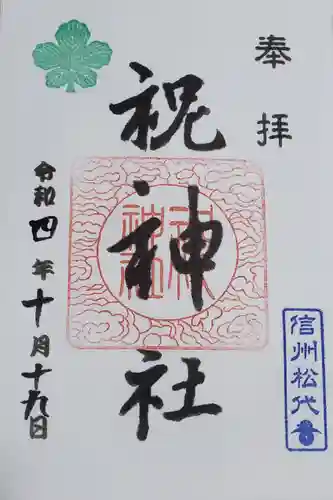 奉拝
信州松代
祝神社
祝神社
令和四年十月十九日